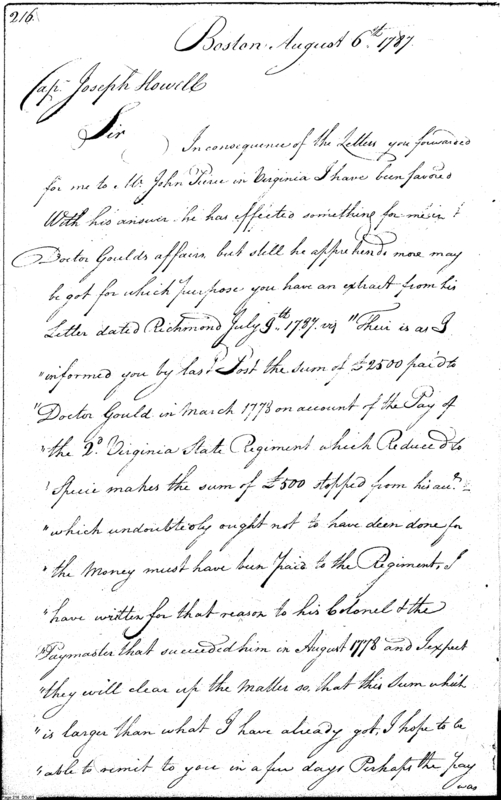 216.
Boston August 6th. 1787.
Cap. Joseph Howell
Sir
In consequence of the Letters you forwarded
for me to Mr John in Virginia I have been favored
With his answer. he has effected something for me in
Doctor Goulds affairs, but still he apprehends more may
be got for which purpose you have an extract from his
Letter dated Richmond July 9th. 1787. viz "Their is as I
"informed you by last Post the sum of £2500 paid to
"Doctor Gould in March 1778 on account of the Pay of
"the 2d Virginia State Regiment which Reduced to
"Specie makes the sum of £500 stopped from his acct.
"which undoubtedly ought not to have deen done for
"the Money must have been paid to the Regiment, I
"have written for that reason to his Colonel & the
"Paymaster that succeeded him in August 1778 and I expect
"they will clear up the Matter so, that this Sum which
"is larger than what I have already got, I hope to be
"able to remit to you in a few days Perhaps the pay
was